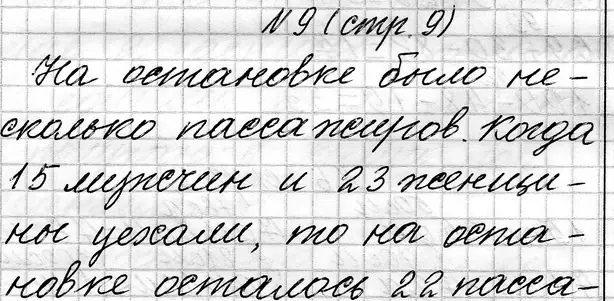 N9 (стр. 9)
На остановке было не-
сколько пассажиров. Когда
15 мужчин и 23 женщи-
ны уехали, то на оста-
новке осталось 22 пасса-